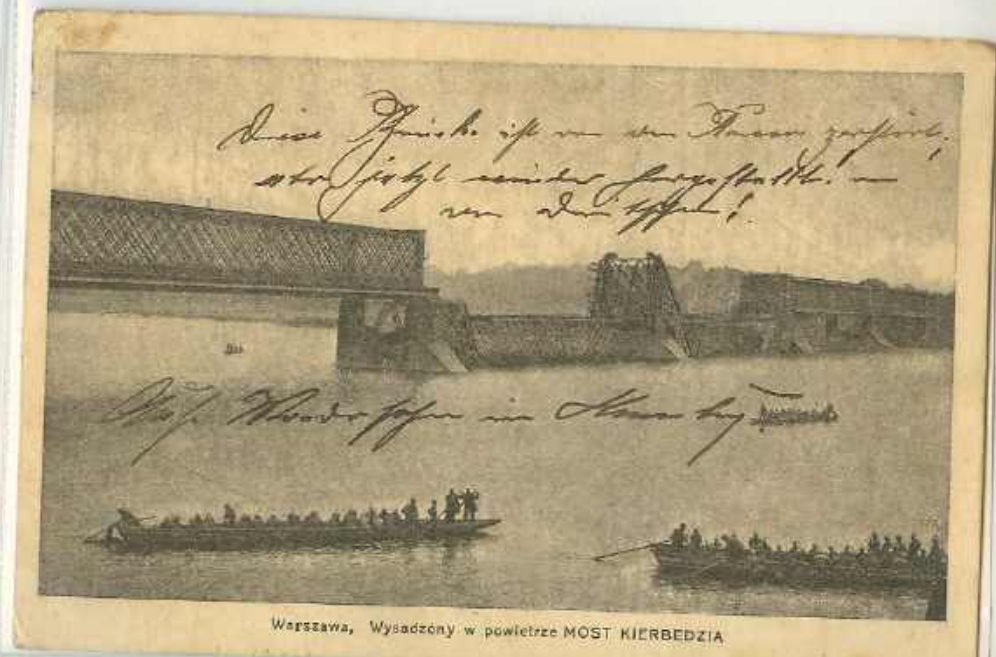 Diese Brücke ist von den Russen zerstört,
aber jetzt wieder hergestellt
von Deutschen!
Auf Wiedersehen in
Warszawa, Wysadzony w powietrze MOST KIERBEDZIA